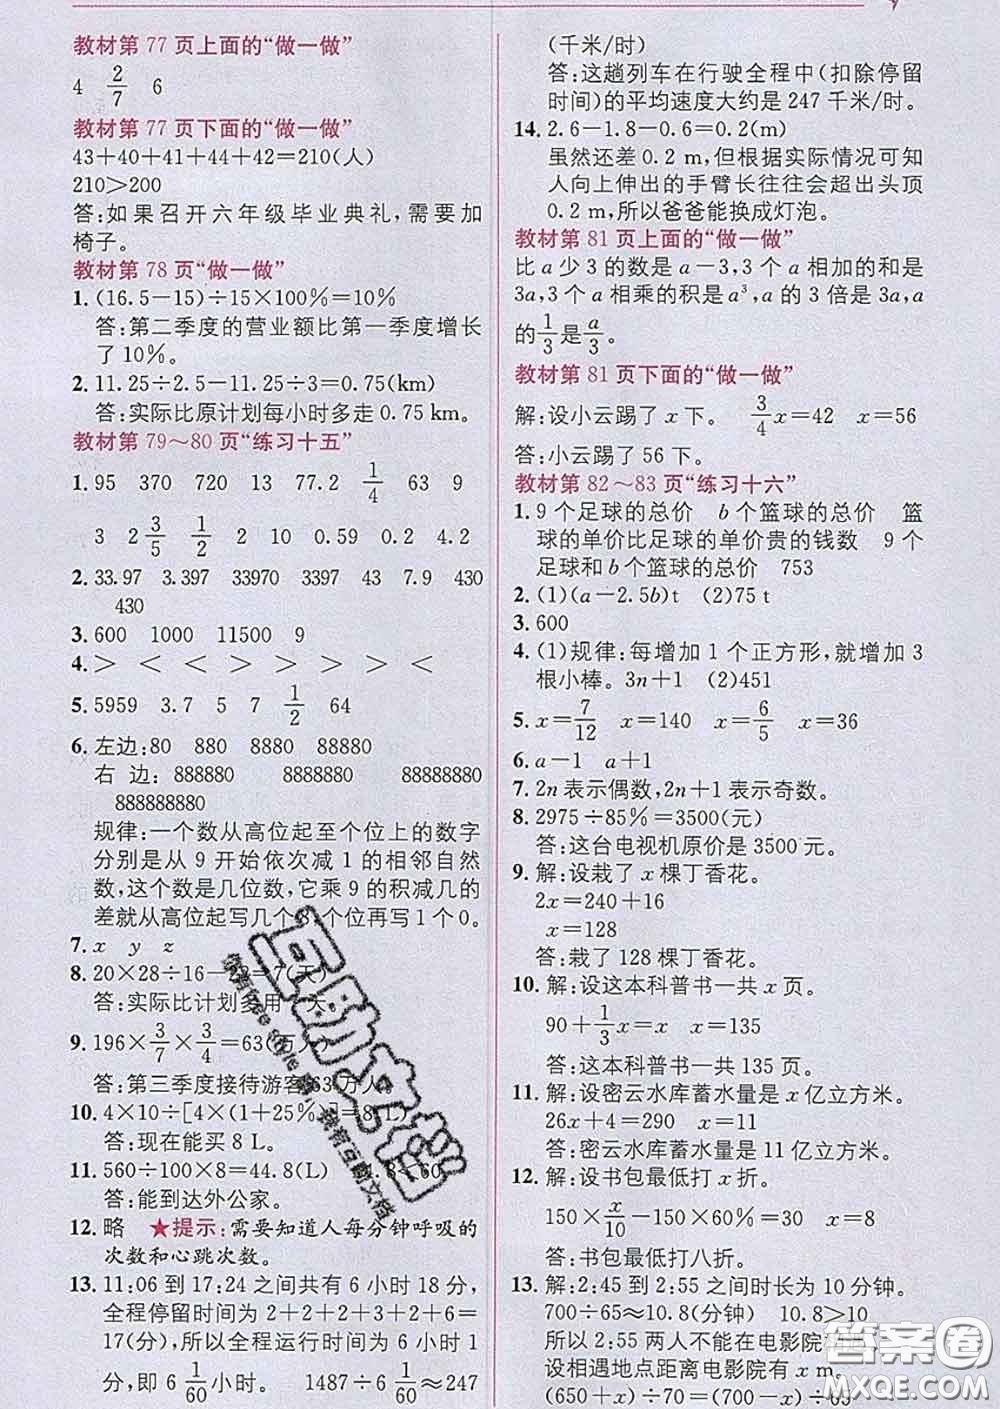 教材第 77 页上面的“做一做”
4 2/7 6
教材第 77 页下面的“做一做”
43+40+41+44+42=210(人)
210>200
答:如果召开六年级毕业典礼,需要加
椅子。
教材第 78 页“做一做”
1. (16.5-15)÷15×100%=10%
答:第二季度的营业额比第一季度增长
了 10%。
2. 11.25÷2.5-11.25÷3=0.75(km)
答:实际比原计划每小时多走 0.75 km。
教材第 79~80 页“练习十五”
1. 95 370 720 13 77.2 1/4 63 9
3 2 3/5 1/2 2 10 0.59 0.2 4.2
2. 33.97 3.397 33970 3397 43 7.9 430
430
3. 600 1000 11500 9
4. > < < > > > > <
5. 5959 3.7 5 7 1/2 64
6. 左边:80 880 8880 88880
右边:888880 8888880 88888880
888888880
规律:一个数从高位起至个位上的数字
分别是从 9 开始依次减 1 的相邻自然
数,这个数是几位数,它乘 9 的积减几的
差就从高位起写几个 8,个位再写 1 个 0。
7. x y z
8. 20×28÷16-28=7(天)
答:实际比计划多用 天。
9. 196×3/7×3/4=63(万人)
答:第三季度接待游客 63 万人
10. 4×10÷[4×(1+25%)]=8(L)
答:现在能买 8 L。
11. 560÷100×8=44.8(L) 8<60
答:能到达外公家。
12. 略 ★提示:需要知道人每分钟呼吸的
次数和心跳次数。
13. 11:06 到 17:24 之间共有 6 小时 18 分,
全程停留时间为 2+2+2+3+2+6=
17(分),所以全程运行时间为 6 小时 1
分,即 6 1/60 小时。 1487÷6 1/60≈247
(千米/时)
答:这趟列车在行驶全程中(扣除停留
时间)的平均速度大约是 247 千米/时。
14. 2.6-1.8-0.6=0.2(m)
虽然还差 0.2 m,但根据实际情况可知
人向上伸出的手臂长往往会超出头顶
0.2 m,所以爸爸能换成灯泡。
教材第 81 页上面的“做一做”
比 a 少 3 的数是 a-3,3 个 a 相加的和是
3a,3 个 a 相乘的积是 a³,a 的 3 倍是 3a,a
的 1/3 是 a/3。
教材第 81 页下面的“做一做”
解:设小云踢了 x 下。 3/4 x=42 x=56
答:小云踢了 56 下。
教材第 82~83 页“练习十六”
1. 9 个足球的总价 b 个篮球的总价 篮
球的单价比足球的单价贵的钱数 9 个
足球和 b 个篮球的总价 753
2. (1)(a-2.5b)t (2)75 t
3. 600
4. (1)规律:每增加 1 个正方形,就增加 3
根小棒。3n+1 (2)451
5. x=7/12 x=140 x=6/5 x=36
6. a-1 a+1
7. 2n 表示偶数,2n+1 表示奇数。
8. 2975÷85%=3500(元)
答:这台电视机原价是 3500 元。
9. 解:设栽了 x 棵丁香花。
2x=240+16
x=128
答:栽了 128 棵丁香花。
10. 解:设这本科普书一共 x 页。
90+1/3 x=x x=135
答:这本科普书一共 135 页。
11. 解:设密云水库蓄水量是 x 亿立方米。
26x+4=290 x=11
答:密云水库蓄水量是 11 亿立方米。
12. 解:设书包最低打 x 折。
150×x/10-150×60%=30 x=8
答:书包最低打八折。
13. 解:2:45 到 2:55 之间时长为 10 分钟。
700÷65≈10.8(分钟) 10.8>10
所以 2:55 两人不能在电影院
设相遇地点距离电影院有 x m。
(650+x)÷70=(700-x)÷65
互助文档
答案圈
MXQE.COM